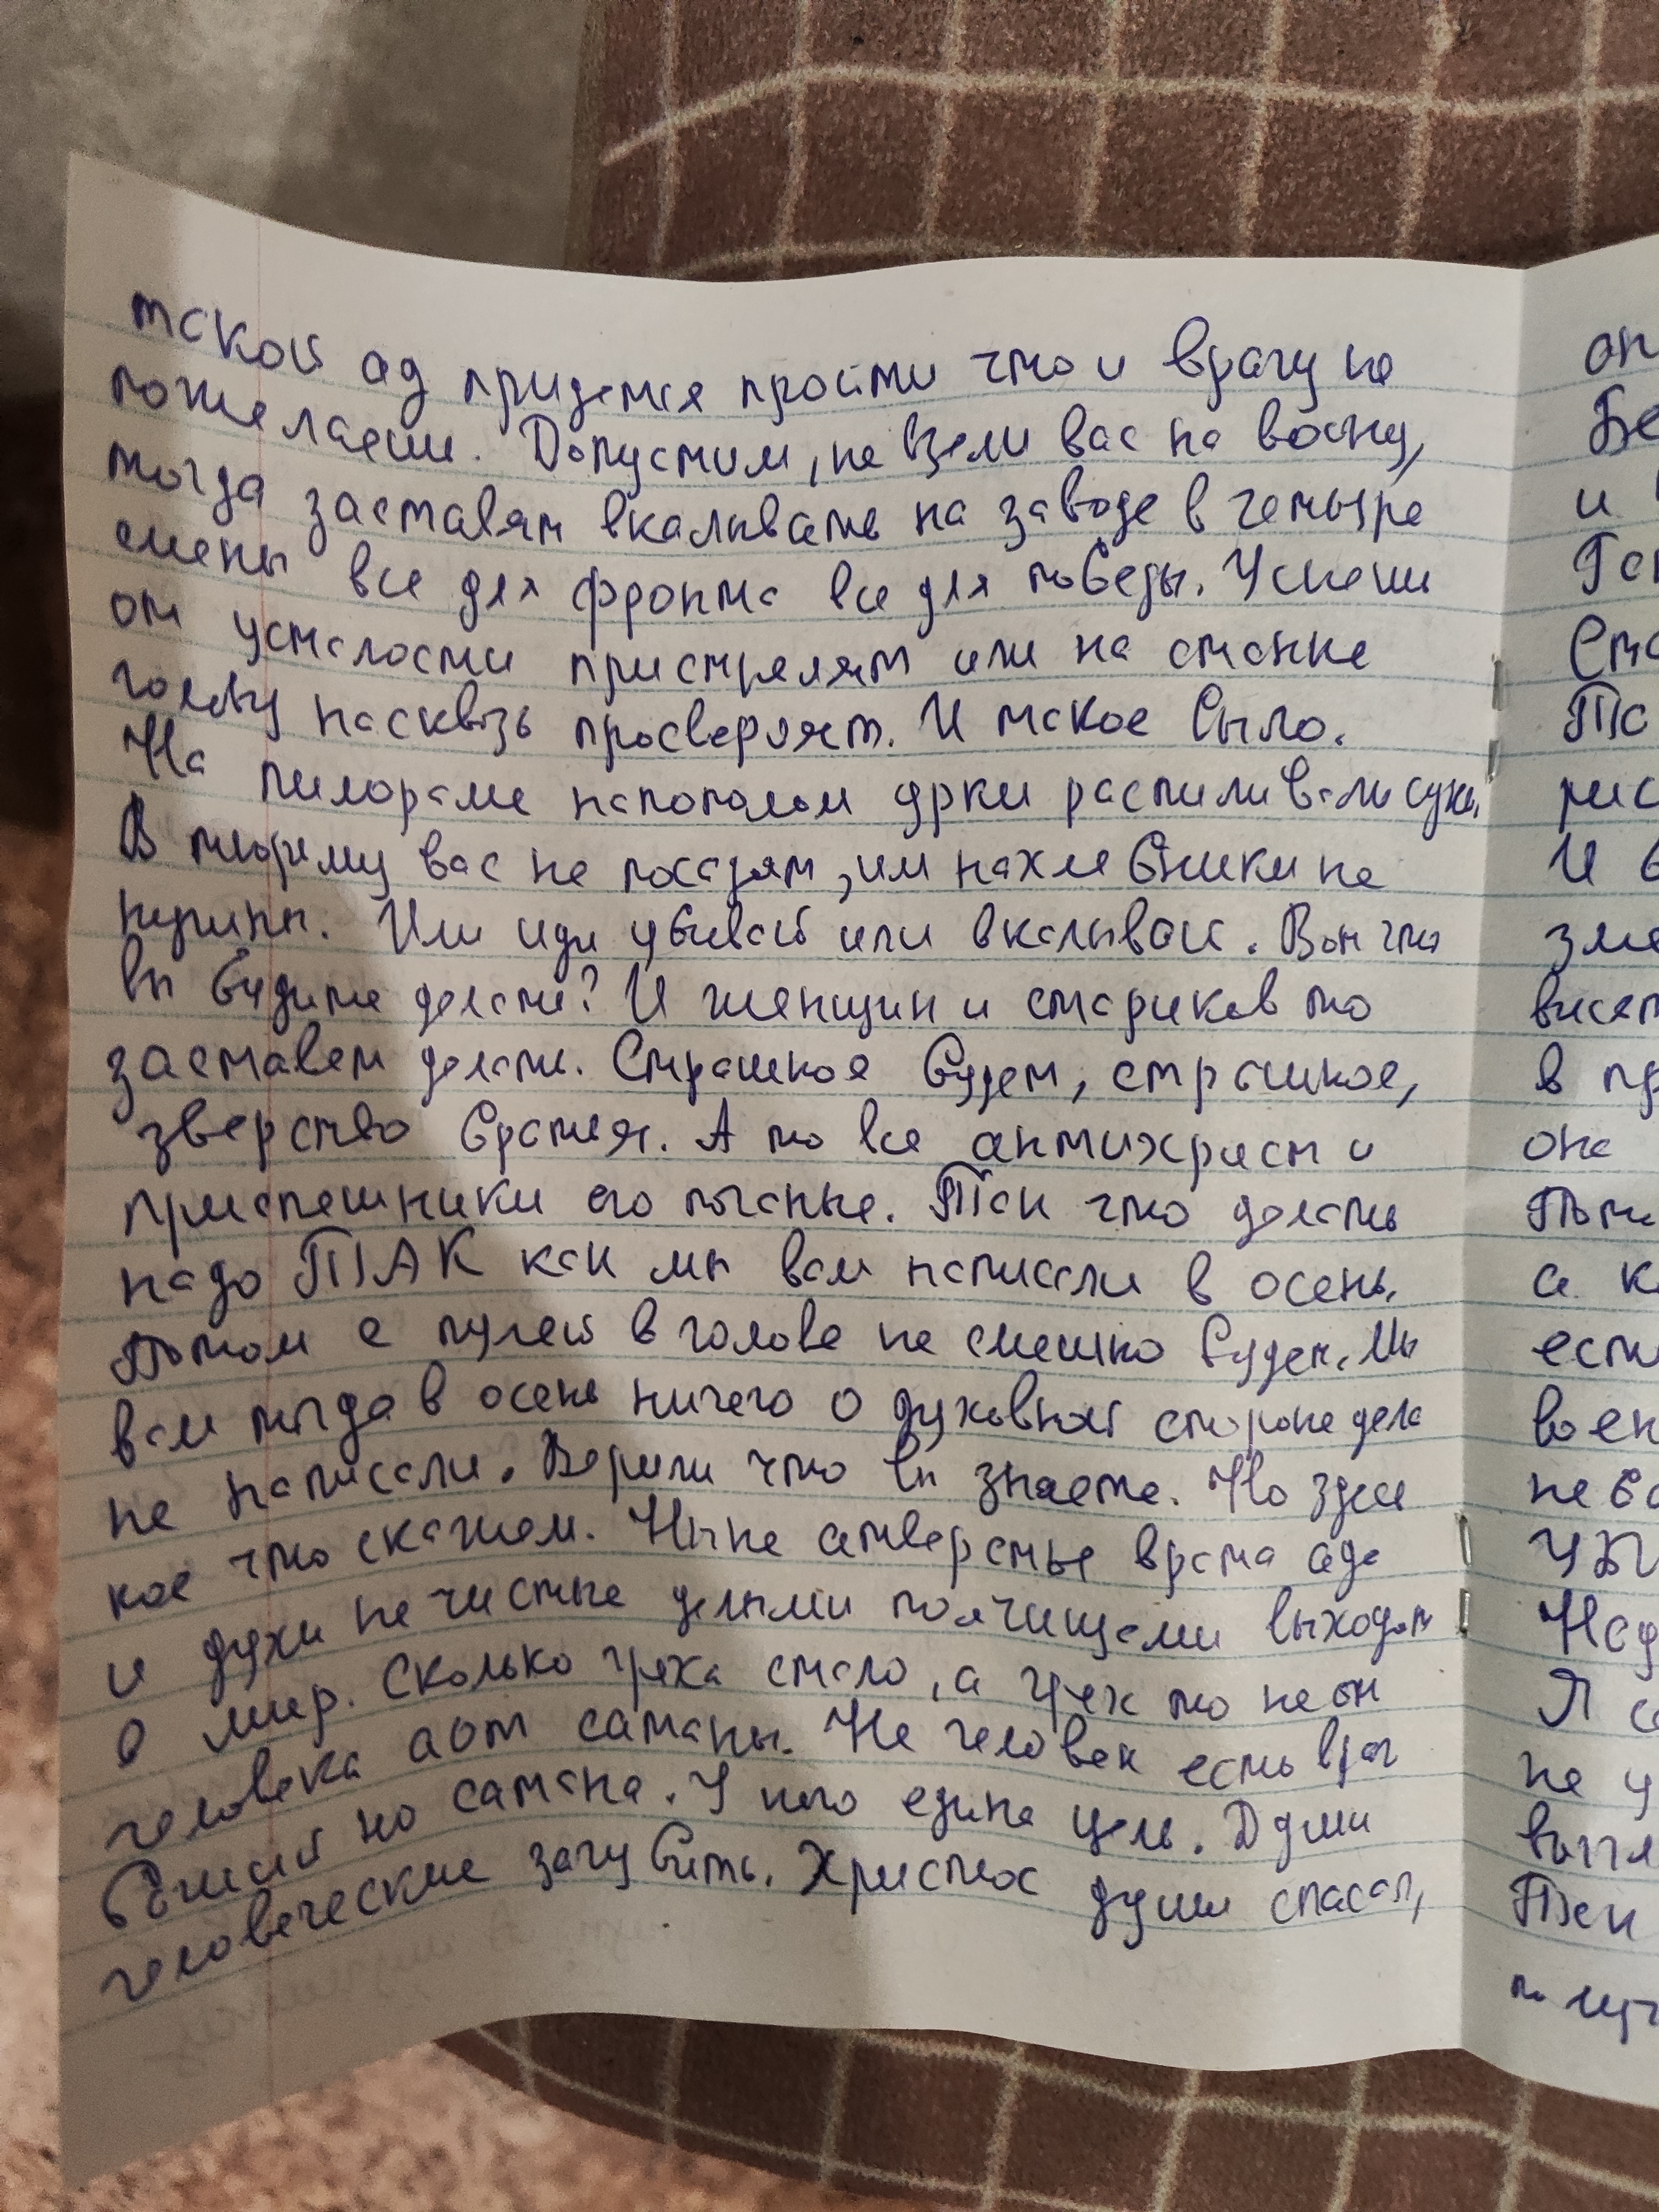 такой ад придется пройти что и врагу не
пожелаеш. Допустим, не взяли вас на войну,
тогда заставят вкалывать на заводе в четыре
смены все для фронта все для победы. Уснеш
от усталости пристрелят или на станке
голову насквозь просверлят. И такое было.
На пилораме напополам урки распиливали сука,
В тюрему вас не посадят, им нахлебники не
нужны. Или иди убивай или вкалывай. Вот что
вы будите делать? И женщин и стариков то
заставят делать. Страшное будет, страшное,
зверство братья. А то все антихрист и
приспешники его поганые. Так что делать
надо ТАК как мы вам написали в осень.
Потом с пулей в голове не смешно будет. Мы
вам тогда в осень ничего о духовной стороне дела
не написали. Верили что вы знаете. Но здесь
кое что скажем. Ныне отверстые врата ада
и духи не чистые целыми полчищами выходят
в мир. Сколько греха стало, а грех то не он
человека а от сатаны. Не человек есть враг
божий но сатана. У него едина цель. Души
человеческие загубить. Христос души спасал,
оп
Бе
и
Ста
То
рис
И б
зме
висят
в пр
она
Пото
а к
есть
воен
не бо
УБИ
Над
Я с
не у
выгл
Так